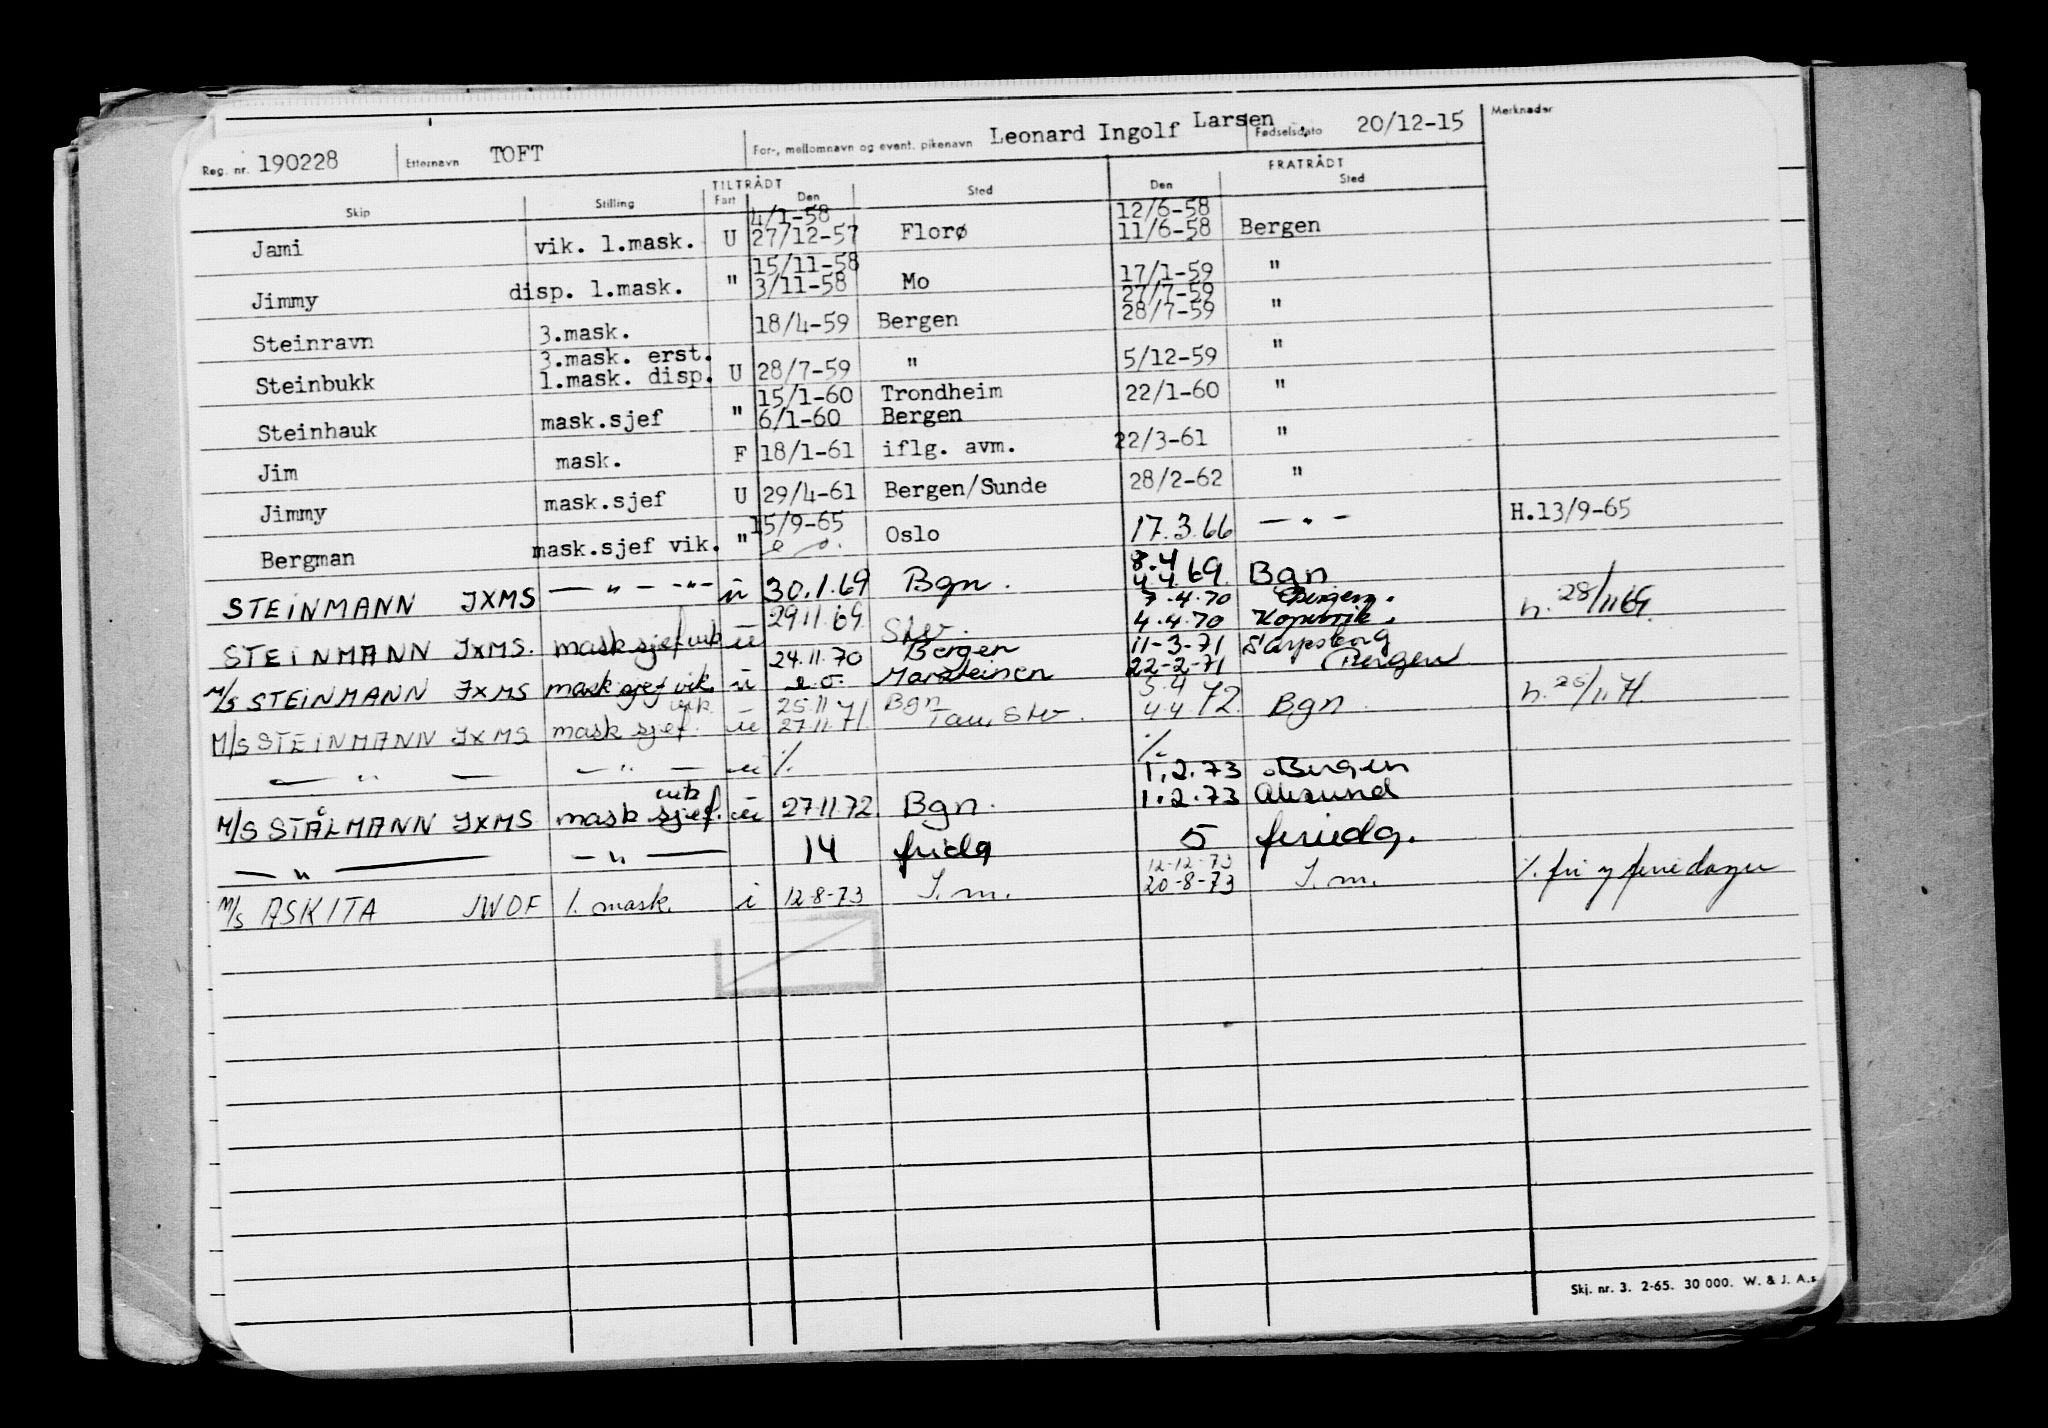 Reg. nr. 190228 Etternavn TOFT For-, mellomnavn og event. pikenavn Leonard Ingolf Larsen Fødselsdato 20/12-15 Merknader
TILTRÅDT FRATRÅDT
Skip Stilling Fart Den Sted Den Sted
4/1-58 12/6-58
Jami vik. 1.mask. U 27/12-57 Florø 11/6-58 Bergen
15/11-58
Jimmy disp. 1.mask. " 3/11-58 Mo 17/1-59 "
27/7-59
Steinravn 3.mask. 18/4-59 Bergen 28/7-59 "
3.mask. erst.
Steinbukk 1.mask. disp. U 28/7-59 " 5/12-59 "
15/1-60 Trondheim
Steinhauk mask.sjef " 6/1-60 Bergen 22/1-60 "
Jim mask. F 18/1-61 iflg. avm. 22/3-61 "
Jimmy mask.sjef U 29/4-61 Bergen/Sunde 28/2-62 "
15/9-65
Bergman mask.sjef vik. " e o. Oslo 17.3.66 — " — H.13/9-65
8.4
STEINMANN JXMS — " — -"- u 30.1.69 Bgn. 4.4.69 Bgn
7.4.70 Bergen.
STEINMANN JXMS. mask sjef vik u 29.11.69 Stv. 4.4.70 Kopervik. h. 28/11 69.
24.11.70 Bergen 11-3-71 Sarpsborg
M/S STEINMANN JXMS mask sjef vik. u e.o. Marsteinen 22-2-71 Bergen
vik 25.11 Bgn 5.4
M/S STEINMANN JXMS mask sjef. u 27.11.71. Tau, Stv. 4.4 72. Bgn. h. 25/11.71.
— " — — " — u %. %.
vik 1.2.73 Bergen
M/S STÅLMANN JXMS mask sjef. u 27.11.72. Bgn. 1.2.73 Ålesund
— " — — " — 14 fridg 5 feriedg.
12-12-73
M/S ASKITA JWDF 1. mask. i 12-8-73 S.m. 20-8-73 S.m. %. fri og feriedager
Skj. nr. 3. 2-65. 30 000. W. & J. A.s